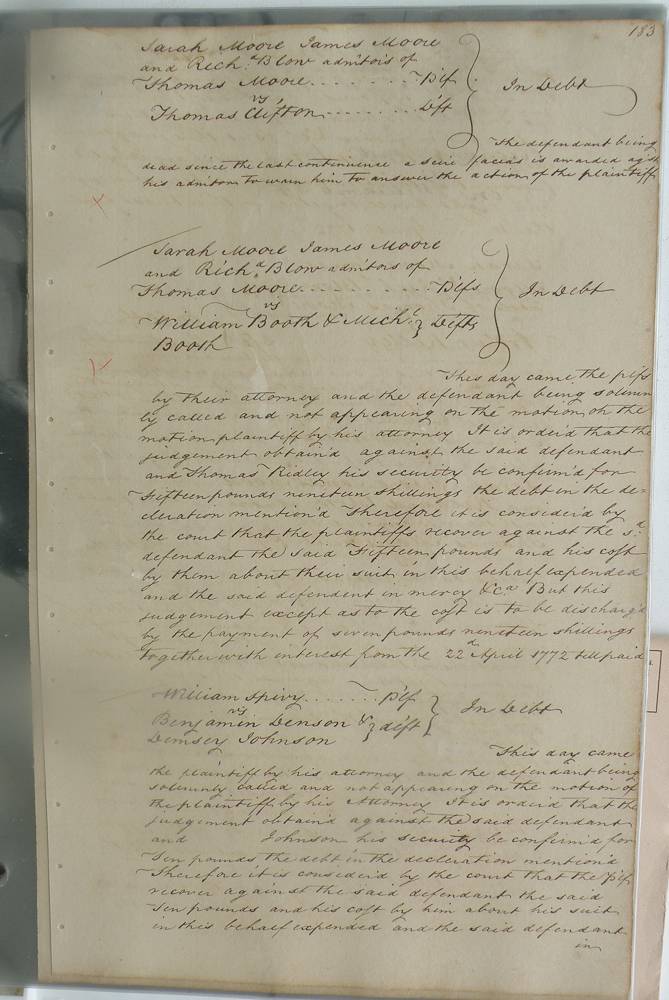 183
Sarah Moore James Moore
and Rich.d Blow admitors of
Thomas Moore........ Plf
vs
Thomas Clifton........ Dft
In Debt
The defendant being
dead since the last continuence a scire facias is awarded agst
his admitors to warn him to answer the action of the plaintiff
Sarah Moore James Moore
and Rich.d Blow admitors of
Thomas Moore......... Plfs
vs
William Booth & Mich.l Defts
Booth
In Debt
This day came the plfs
by their attorney and the defendant being solemn
ly called and not appearing on the motion oh the
motion plaintiff by his attorney It is orderd that the
judgement obtain'd against the said defendant
and Thomas Ridley his security be confirm'd for
Fifteen pounds nineteen shillings the debt in the de-
cleration mention'd Therefore it is consider'd by
the court that the plaintiffs recover against the s.d
defendant the said Fifteen pounds and his cost
by them about their suit in this behalf expended
and the said defendent in mercy &c.a But this
judgement except as to the cost is to be discharg'd
by the payment of seven pounds nineteen shillings
together with interest from the 22.d April 1772 till paid
William Spivy....... Plf
vs
Benjamin Denson &
Demsey Johnson
deft
In Debt
This day came
the plaintiff by his attorney and the defendant being
solemnly called and not appearing on the motion of
the plaintiff by his Attorney It is orderd that the
judgement obtain'd against the said defendant
and Johnson his security be confirm'd for
Ten pounds the debt in the decleration mention'd
Therefore it is consider'd by the court that the Plf
recover against the said defendant the said
Ten pounds and his cost by him about his suit
in this behalf expended and the said defendant
in